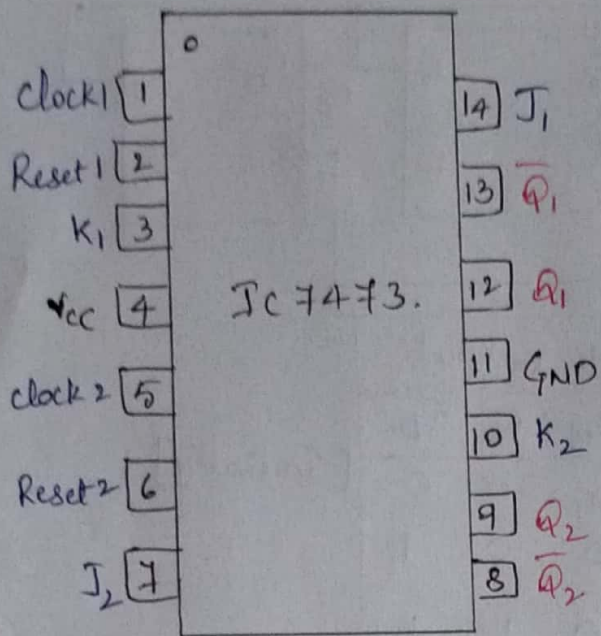 Clock1 1
Reset1 2
K₁ 3
Vcc 4
clock2 5
Reset2 6
J₂ 7
IC 7473.
14 J₁
13 Q̅₁
12 Q₁
11 GND
10 K₂
9 Q₂
8 Q̅₂